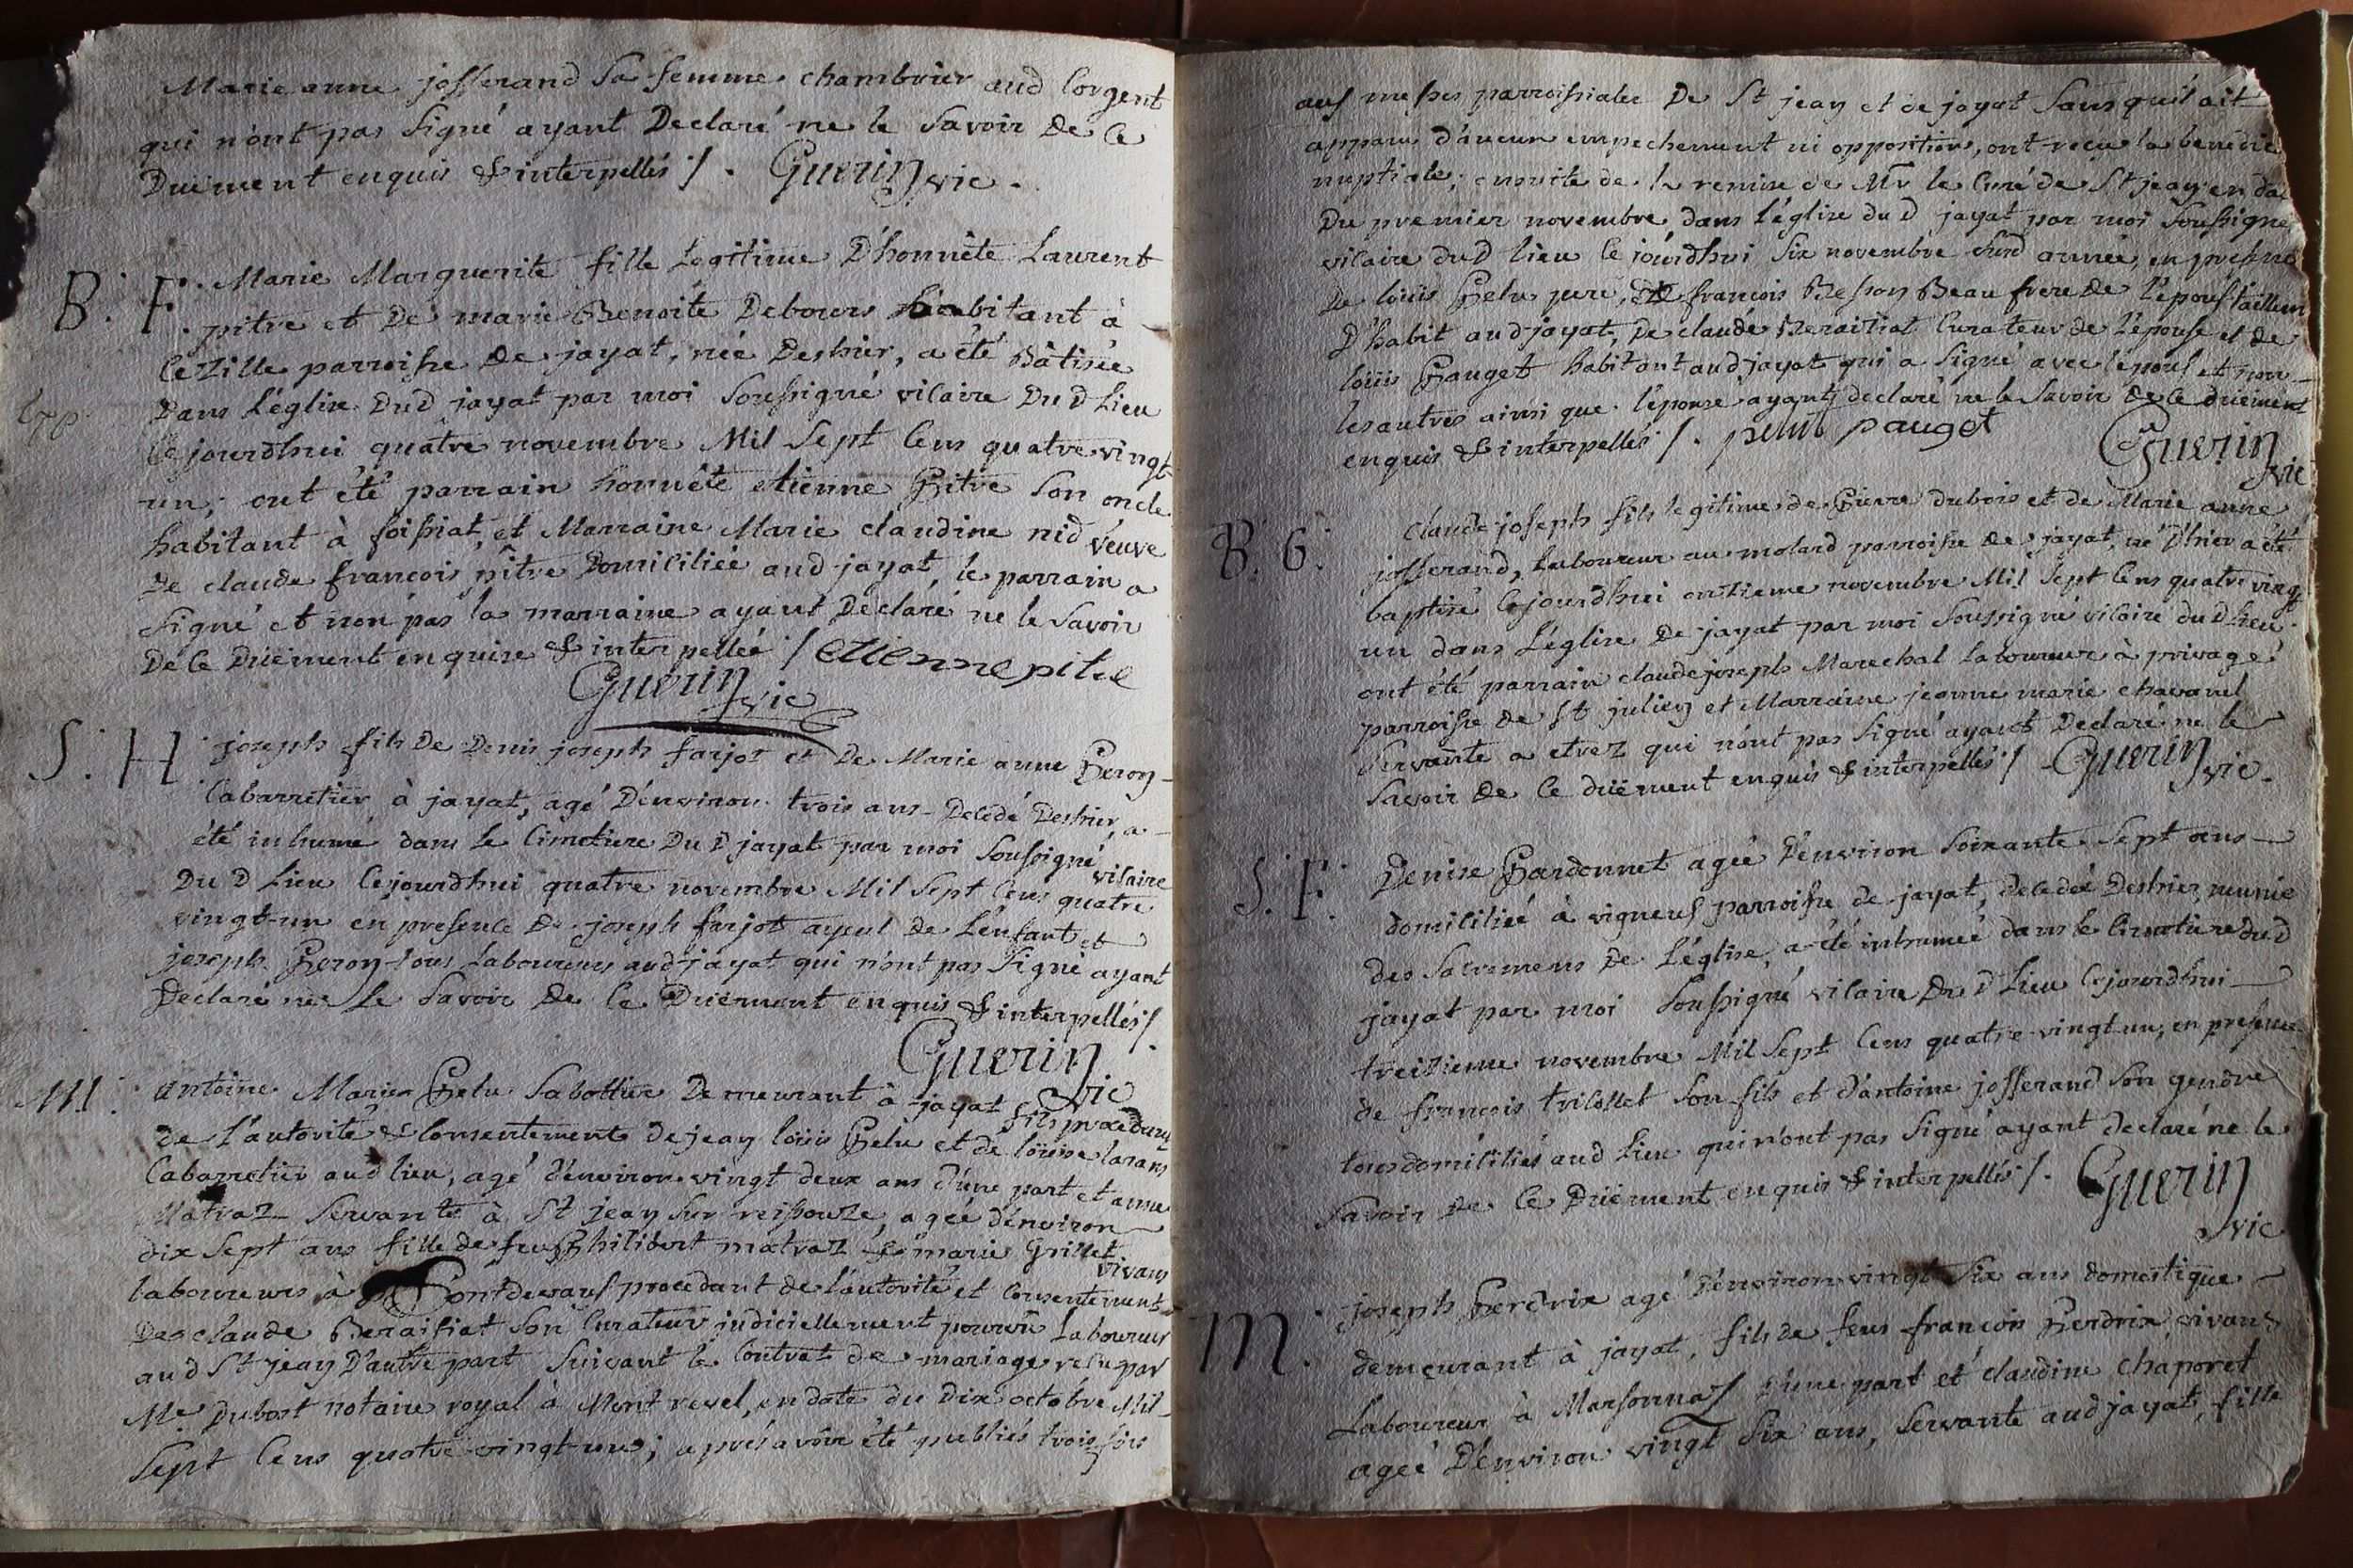 Marie anne josserand sa femme chambrier aud Corgent
qui n'ont pas signé ayant Declaré ne le savoir De Ce
Duëment enquis & interpellés /. Guerin vic.
B. F. Marie Marguerite fille Legitime D'honnète Laurent
pitre et De marie Benoite Debours habitant à
Cezille parroisse De jayat, née Deshier, a été Bâtisée
Dans L'église Dud jayat par moi soussigné vicaire Dud Lieu
Cejourdhui quatre novembre Mil sept Cens quatre vingt
un; ont été parrain honnête etienne Pitre son oncle
habitant à foissiat, et Marraine Marie claudine nid veuve
De claude francois pitre Domiciliée aud jayat, le parrain a
signé et non pas la marraine ayant Declaré ne le savoir
De Ce Duëment enquise & interpellée / etienne pitre
Guerin vic
S. H joseph fils De Denis joseph farjot et De Marie anne Peron
Cabarretier à jayat, agé D'environ trois ans Decedé Deshier, a
été inhumé dans le Cimetiere Dud jayat par moi soussigné vicaire
Dud Lieu Cejourdhui quatre novembre Mil sept Cens quatre
vingt-un en presence De joseph farjot ayeul De L'enfant et
joseph Peron tous Laboureurs aud jayat qui n'ont pas signé ayant
Declaré ne Le savoir De Ce Duëment enquis & interpellés /.
Guerin vic
M. antoine Marie Pelu sabottier Demeurant à jayat fils procedant
de L'autorité & Consentement de jean loüis Pelu et de loüise
Cabarretier aud lieu, agé d'environ vingt deux ans d'une part et anne
Matraz servante à St jean sur reissouze, agée d'environ
dix sept ans fille de feu Philibert matraz & marie Grillet vivans
laboureurs à Pontdevaux procedant de l'autorité et Consentement
De claude Beraitiat son Curateur judiciellement pourvû Laboureur
aud St jean D'autre part suivant le Contrat de mariage reçu par
Me Dubost notaire royal à Montrevel, en date du Dix octobre Mil
sept Cens quatre vingt-un; aprés avoir été publiés trois fois
aux messes parroissiales De St jean et de jayat sans quil ait
apparu d'aucun empechement ni oppositions, ont reçu la benedic
nuptiale, ensuite de la remise de Mr le Curé de St jean en da
Du premier novembre, dans l'église dud jayat par moi soussigné
vicaire dud lieu Cejourdhui six novembre susd année, en presence
De loüis Pelu pere, De francois Besson Beau frere De l'époux taillieur
D'habit aud jayat, De claude Beraitiat Curateur de l'épouse et de
loüis Pauget habitant aud jayat qui a signé avec l'époux et non
les autres ainsi que l'épouse ayant declaré ne le savoir De Ce duëment
enquis & interpellés /. pelut pauget Guerin vic
B. G. Claude joseph fils legitime de Pierre dubois et de Marie anne
josserand, Laboureur au molard parroisse De jayat, né D'hier a été
baptisé Cejourdhui onzieme novembre Mil sept Cens quatre vingt
un dans L'église De jayat par moi soussigné vicaire dud Lieu
ont été parrain claude joseph Marechal laboureur à privage
parroisse de St julien et Marraine jeanne marie chavanel
servante a etrez qui n'ont pas signé ayant Declaré ne le
savoir De Ce duëment enquis & interpellés / Guerin vic.
S. F. Denise Pardonnet agée D'environ soixante sept ans
domiciliée à vigneux parroisse de jayat, decedée Deshier, munie
des sacremens De L'église, a été inhumée dans le Cimetiere dud
jayat par moi soussigné vicaire Dud Lieu Cejourdhui
treizieme novembre Mil sept Cens quatre-vingt-un, en presence
de francois tricollet son fils et d'antoine josserand son gendre
tous domiciliés aud Lieu qui n'ont pas signé ayant declaré ne le
savoir De Ce Duëment enquis & interpellés /. Guerin vic
M. joseph Perdrix agé D'environ vingt six ans domestique
demeurant à jayat, fils de feus francois Perdrix vivant
Laboureur à Marsonnas d'une part et claudine chaporet
agée D'environ vingt six ans, servante aud jayat, fille